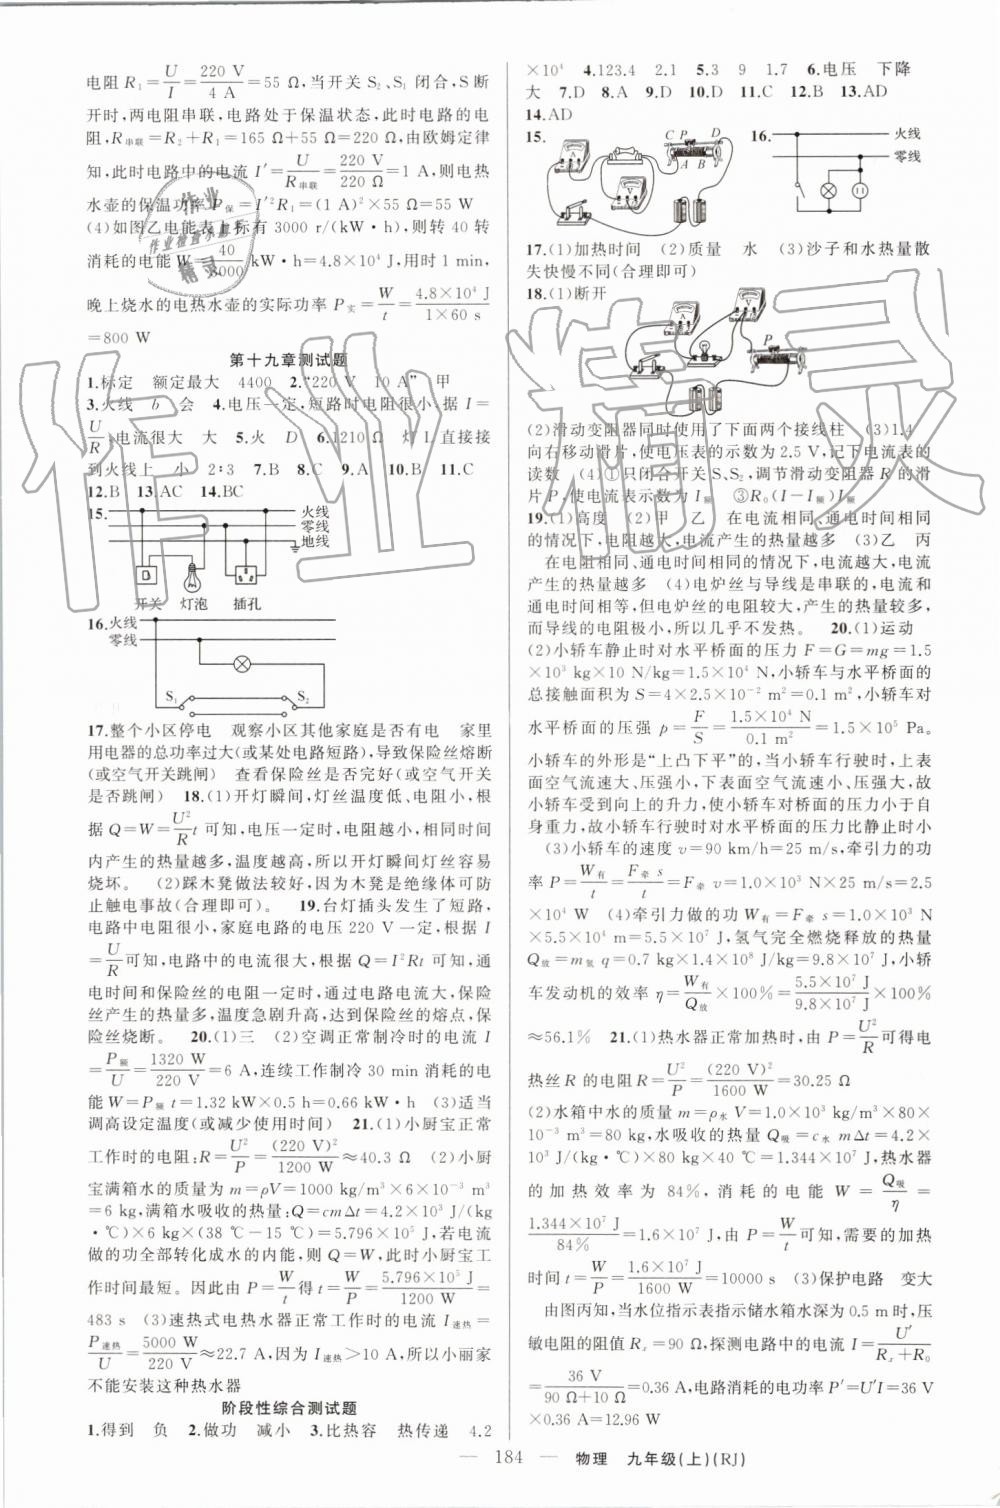 电阻 R₁=U/I=220 V/4 A=55 Ω,当开关 S₂、S₁ 闭合,S 断
开时,两电阻串联,电路处于保温状态,此时电路的电
阻,R串联=R₂+R₁=165 Ω+55 Ω=220 Ω,由欧姆定律
知,此时电路中的电流 I′=U/R串联=220 V/220 Ω=1 A,则电热
水壶的保温功率 P保=I′²R₁=(1 A)²×55 Ω=55 W
(4)如图乙电能表上标有 3000 r/(kW·h),则转 40 转
消耗的电能 W=40/3000 kW·h=4.8×10⁴ J,用时 1 min,
晚上烧水的电热水壶的实际功率 P实=W/t=4.8×10⁴ J/1×60 s
=800 W
第十九章测试题
1.标定 额定最大 4400 2.“220 V 10 A” 甲
3.火线 b 会 4.电压一定,短路时电阻很小,据 I=
U/R,电流很大 大 5.火 D 6.1210 Ω 灯 L 直接接
到火线上 小 2:3 7.B 8.C 9.A 10.B 11.C
12.B 13.AC 14.BC
15. 火线
零线
地线
开关 灯泡 插孔
16. 火线
零线
S₁ S₂
17.整个小区停电 观察小区其他家庭是否有电 家里
用电器的总功率过大(或某处电路短路),导致保险丝熔断
(或空气开关跳闸) 查看保险丝是否完好(或空气开关
是否跳闸) 18.(1)开灯瞬间,灯丝温度低、电阻小,根
据 Q=W=U²/R t 可知,电压一定时,电阻越小,相同时间
内产生的热量越多,温度越高,所以开灯瞬间灯丝容易
烧坏。 (2)踩木凳做法较好,因为木凳是绝缘体可防
止触电事故(合理即可)。 19.台灯插头发生了短路,
电路中电阻很小,家庭电路的电压 220 V 一定,根据 I
=U/R可知,电路中的电流很大,根据 Q=I²Rt 可知,通
电时间和保险丝的电阻一定时,通过电路电流大,保险
丝产生的热量多,温度急剧升高,达到保险丝的熔点,保
险丝烧断。 20.(1)三 (2)空调正常制冷时的电流 I
=P额/U=1320 W/220 V=6 A,连续工作制冷 30 min 消耗的电
能 W=P额 t=1.32 kW×0.5 h=0.66 kW·h (3)适当
调高设定温度(或减少使用时间) 21.(1)小厨宝正常
工作时的电阻:R=U²/P=(220 V)²/1200 W≈40.3 Ω (2)小厨
宝满箱水的质量为 m=ρV=1000 kg/m³×6×10⁻³ m³
=6 kg,满箱水吸收的热量:Q=cmΔt=4.2×10³ J/(kg
·℃)×6 kg×(38 ℃-15 ℃)=5.796×10⁵ J,若电流
做的功全部转化成水的内能,则 Q=W,此时小厨宝工
作时间最短。因此由 P=W/t得 t=W/P=5.796×10⁵ J/1200 W=
483 s (3)速热式电热水器正常工作时的电流 I速热=
P速热/U=5000 W/220 V≈22.7 A,因为 I速热>10 A,所以小丽家
不能安装这种热水器
阶段性综合测试题
1.得到 负 2.做功 减小 3.比热容 热传递 4.2
×10⁴ 4.123.4 2.1 5.3 9 1.7 6.电压 下降
大 7.D 8.A 9.D 10.D 11.C 12.B 13.AD
14.AD
15. C P D A B 16. 火线
零线
17.(1)加热时间 (2)质量 水 (3)沙子和水热量散
失快慢不同(合理即可)
18.(1)断开
A V P
(2)滑动变阻器同时使用了下面两个接线柱 (3)1.4
向右移动滑片,使电压表的示数为 2.5 V,记下电流表的
读数 (4)①只闭合开关 S、S₂,调节滑动变阻器 R 的滑
片 P,使电流表示数为 I额 ③R₀(I-I额)I额
19.(1)高度 (2)甲 乙 在电流相同、通电时间相同
的情况下,电阻越大,电流产生的热量越多 (3)乙 丙
在电阻相同、通电时间相同的情况下,电流越大,电流
产生的热量越多 (4)电炉丝与导线是串联的,电流和
通电时间相等,但电炉丝的电阻较大,产生的热量较多,
而导线的电阻极小,所以几乎不发热。 20.(1)运动
(2)小轿车静止时对水平桥面的压力 F=G=mg=1.5
×10³ kg×10 N/kg=1.5×10⁴ N,小轿车与水平桥面的
总接触面积为 S=4×2.5×10⁻² m²=0.1 m²,小轿车对
水平桥面的压强 p=F/S=1.5×10⁴ N/0.1 m²=1.5×10⁵ Pa。
小轿车的外形是“上凸下平”的,当小轿车行驶时,上表
面空气流速大、压强小,下表面空气流速小、压强大,故
小轿车受到向上的升力,使小轿车对桥面的压力小于自
身重力,故小轿车行驶时对水平桥面的压力比静止时小
(3)小轿车的速度 v=90 km/h=25 m/s,牵引力的功
率 P=W有/t=F牵 s/t=F牵 v=1.0×10³ N×25 m/s=2.5
×10⁴ W (4)牵引力做的功 W有=F牵 s=1.0×10³ N
×5.5×10⁴ m=5.5×10⁷ J,氢气完全燃烧释放的热量
Q放=m氢 q=0.7 kg×1.4×10⁸ J/kg=9.8×10⁷ J,小轿
车发动机的效率 η=W有/Q放×100%=5.5×10⁷ J/9.8×10⁷ J×100%
≈56.1% 21.(1)热水器正常加热时,由 P=U²/R可得电
热丝 R 的电阻 R=U²/P=(220 V)²/1600 W=30.25 Ω
(2)水箱中水的质量 m=ρ水 V=1.0×10³ kg/m³×80×
10⁻³ m³=80 kg,水吸收的热量 Q吸=c水 mΔt=4.2×
10³ J/(kg·℃)×80 kg×40 ℃=1.344×10⁷ J,热水器
的加热效率为 84%,消耗的电能 W=Q吸/η=
1.344×10⁷ J/84%=1.6×10⁷ J,由 P=W/t可知,需要的加热
时间 t=W/P=1.6×10⁷ J/1600 W=10000 s (3)保护电路 变大
由图丙知,当水位指示表指示储水箱水深为 0.5 m 时,压
敏电阻的阻值 Rₓ=90 Ω,探测电路中的电流 I=U′/(Rₓ+R₀)
=36 V/(90 Ω+10 Ω)=0.36 A,电路消耗的电功率 P′=U′I=36 V
×0.36 A=12.96 W
— 184 — 物理 九年级(上)(RJ)
作业精灵